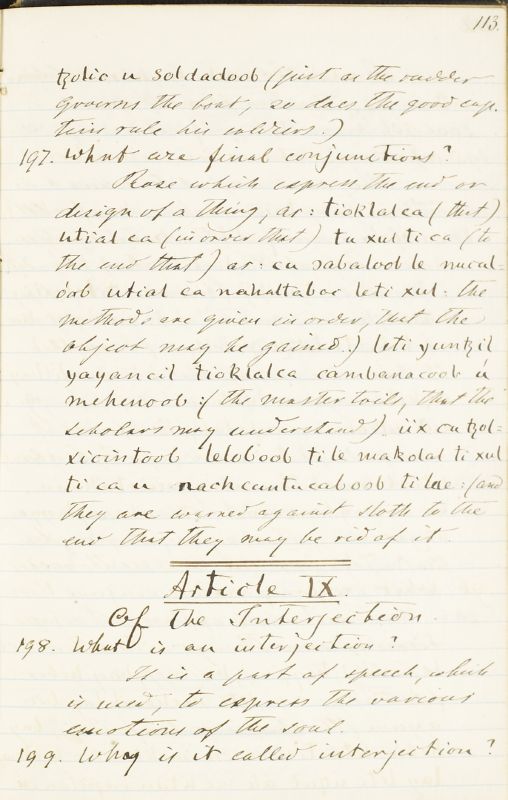 113.
tzolic u soldadoob (just as the rudder
governs the boat, so does the good cap-
tain rule his soldiers.)
197. What are final conjunctions?
Those which express the end or
design of a thing, as: tioklal ca (that)
utial ca (in order that) tu xul ti ca (to
the end that) as: cu sabaloob le nucul-
óob utial ca nahaltabac leti xul: the
methods are given in order, that the
object may be gained.) leti yuntzil
yayancil tioklal ca cambanacoob ú
mehenoob: (the master toils, that the
scholars may understand) iix cu tzol-
xicintoob leloboob ti le makolal ti xul
ti ca u nachcuntucaboob ti lae: (and
they are warned against sloth to the
end that they may be rid of it.
Article IX.
Of the Interjection.
198. What is an interjection?
It is a part of speech, which
is used, to express the various
emotions of the soul.
199. Why is it called interjection?